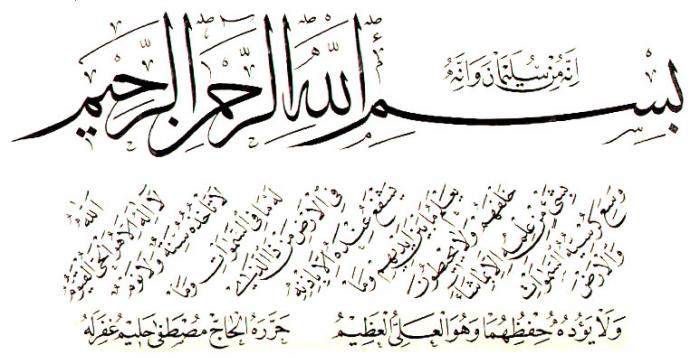 اِنَّهُ مِنْ سُلَيْمَانَ وَاِنَّهُ
بِسْمِ اللهِ الرَّحْمٰنِ الرَّحِيمِ
اَللهُ
لَا اِلٰهَ اِلَّا هُوَ الْحَيُّ الْقَيُّومُ
لَا تَأْخُذُهُ سِنَةٌ وَلَا نَوْمٌ
لَهُ مَا فِي السَّمٰوَاتِ وَمَا
فِي الْاَرْضِ مَنْ ذَا الَّذِي
يَشْفَعُ عِنْدَهُ اِلَّا بِاِذْنِهِ
يَعْلَمُ مَا بَيْنَ اَيْدِيهِمْ وَمَا
خَلْفَهُمْ وَلَا يُحِيطُونَ
بِشَيْءٍ مِنْ عِلْمِهِ اِلَّا بِمَا شَاءَ
وَسِعَ كُرْسِيُّهُ السَّمٰوَاتِ
وَالْاَرْضَ
وَلَا يَؤُدُهُ حِفْظُهُمَا وَهُوَ الْعَلِيُّ الْعَظِيمُ
حَرَّرَهُ الْحَاجّ مُصْطَفٰى حَلِيم غُفِرَ لَهُ